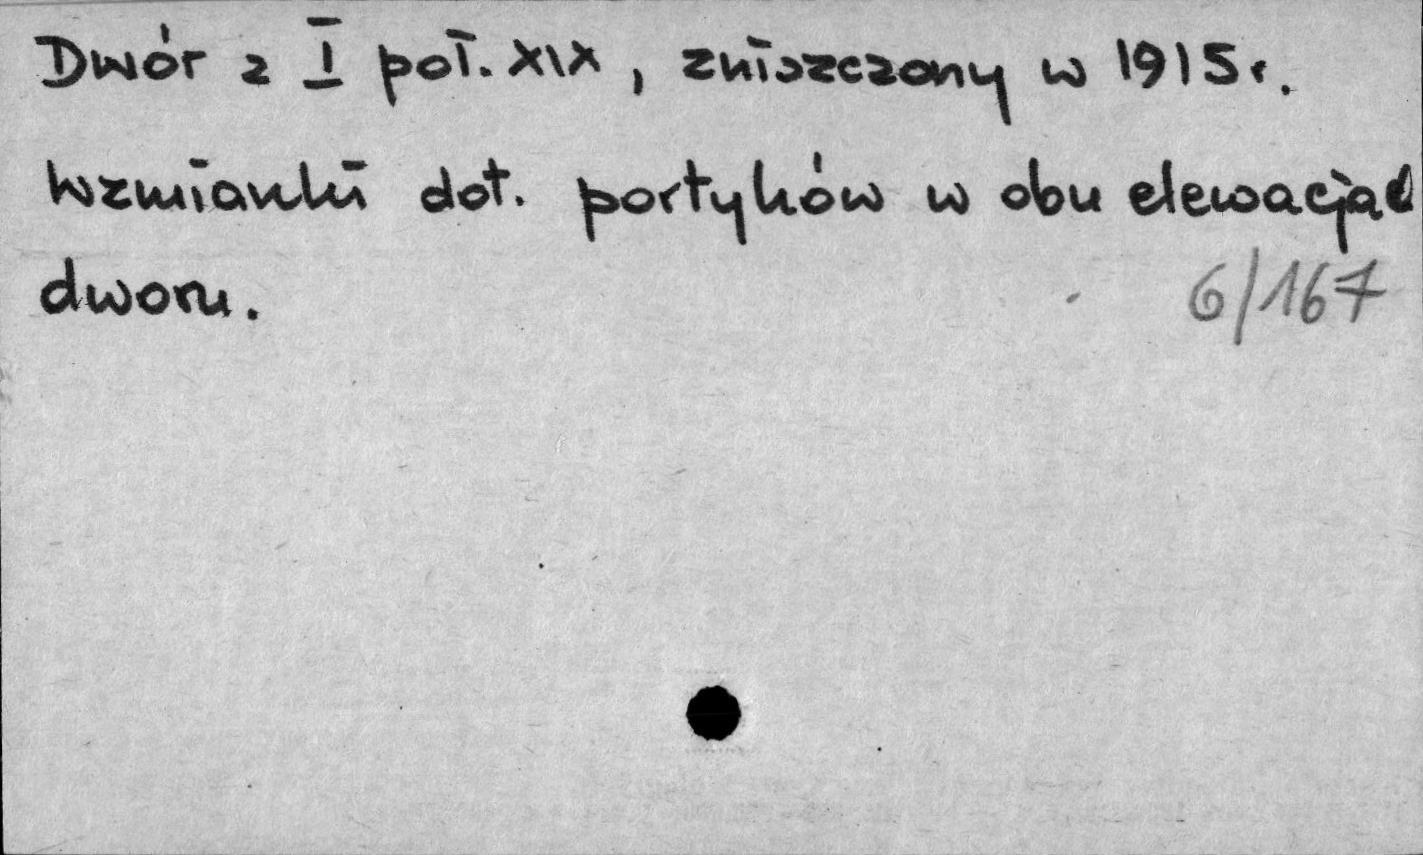 Dwór z I poł. XIX, zniszczony w 1915 r.
Wzmianki dot. portyków w obu elewacjach
dworu.
6/167